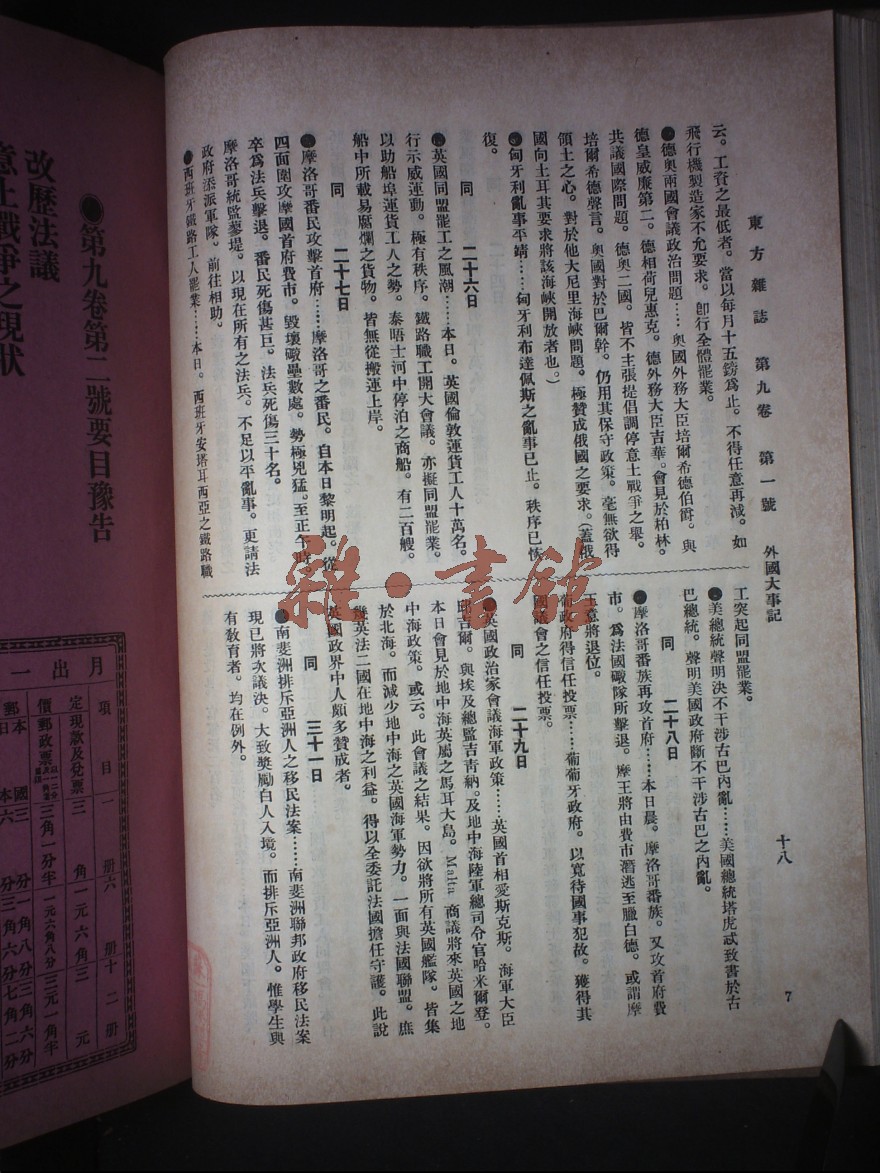 東方雜誌 第九卷 第一號 外國大事記
十八
云。工資之最低者。當以每月十五鎊爲止。不得任意再減。如
飛行機製造家不允要求。卽行全體罷業。
●德奧兩國會議政治問題……奧國外務大臣培爾希德伯爵。與
德皇威廉第二。德相荷兒惠克。德外務大臣吉華。會見於柏林。
共議國際問題。德奧二國。皆不主張提倡調停意土戰爭之舉。
培爾希德聲言。奧國對於巴爾幹。仍用其保守政策。毫無欲得
領土之心。對於他大尼里海峽問題。極贊成俄國之要求。(蓋俄
國向土耳其要求將該海峽開放者也。)
●匈牙利亂事平靖……匈牙利布達佩斯之亂事已止。秩序已恢
復。
同 二十六日
●英國同盟罷工之風潮……本日。英國倫敦運貨工人十萬名。
行示威運動。極有秩序。鐵路職工開大會議。亦擬同盟罷業。
以助船埠運貨工人之勢。泰晤士河中停泊之商船。有二百艘。
船中所載易腐爛之貨物。皆無從搬運上岸。
同 二十七日
●摩洛哥番民攻擊首府……摩洛哥之番民。自本日黎明起。從
四面圍攻摩國首府費市。毀壞礮壘數處。勢極兇猛。至正午時。
卒爲法兵擊退。番民死傷甚巨。法兵死傷三十名。
摩洛哥統監蓼堤。以現在所有之法兵。不足以平亂事。更請法
政府添派軍隊。前往相助。
●西班牙鐵路工人罷業……本日。西班牙安塔耳西亞之鐵路職
工突起同盟罷業。
●美總統聲明決不干涉古巴內亂……美國總統塔虎忒致書於古
巴總統。聲明美國政府斷不干涉古巴之內亂。
同 二十八日
●摩洛哥番族再攻首府……本日晨。摩洛哥番族。又攻首府費
市。爲法國礮隊所擊退。摩王將由費市潛逃至臘白德。或謂摩
王意將退位。
葡政府得信任投票……葡萄牙政府。以寬待國事犯故。獲得其
國議會之信任投票。
同 二十九日
●英國政治家會議海軍政策……英國首相愛斯克斯。海軍大臣
邱吉爾。與埃及總監吉青納。及地中海陸軍總司令官哈米爾登。
本日會見於地中海英屬之馬耳大島。Malta 商議將來英國之地
中海政策。或云。此會議之結果。因欲將所有英國艦隊。皆集
於北海。而減少地中海之英國海軍勢力。一面與法國聯盟。庶
幾英法二國在地中海之利益。得以全委託法國擔任守護。此說
英國政界中人頗多贊成者。
同 三十一日
●南斐洲排斥亞洲人之移民法案……南斐洲聯邦政府移民法案
現已將次議決。大致獎勵白人入境。而排斥亞洲人。惟學生與
有敎育者。均在例外。
7
雜·書館
●第九卷第二號要目豫告
改歷法議
意土戰爭之現狀
月出一
項目 一册 六册 十二册
定價 現款及兌票 三角 一元六角 三元
郵政票 三角一分半 一元六角八分 三元一角半